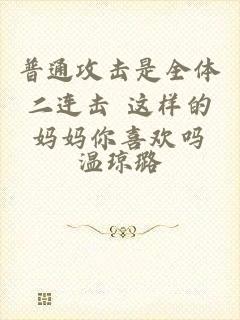 普通攻击是全体
二连击 这样的
妈妈你喜欢吗
温琼璐